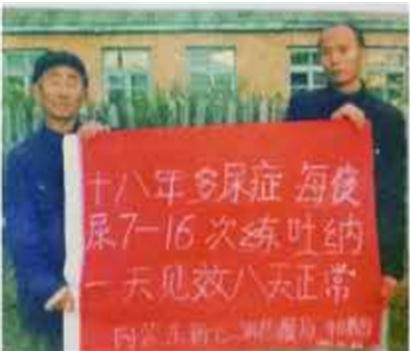 十八年多尿症 每夜
尿7-16次练吐纳
一天见效八天正常